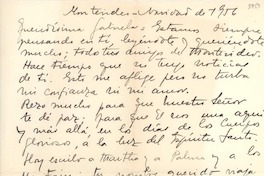 Montevideo - Navidad de 1956
Queridísima Gabriela: Estamos siempre
pensando en ti, leyéndote y queriéndote
mucho; todos tus amigos del Montevideo.
Hace tiempo que no tengo noticias
de ti. Esto me aflige pero no turba
mi confianza ni mi amor.
Rezo mucho para que nuestro Señor
te dé paz; para que El sea una aquí
y más allá, en lo días de los Cuerpos
gloriosos, a la luz del Espíritu Santo.
Hoy escribo a Martha y a Palma y a los